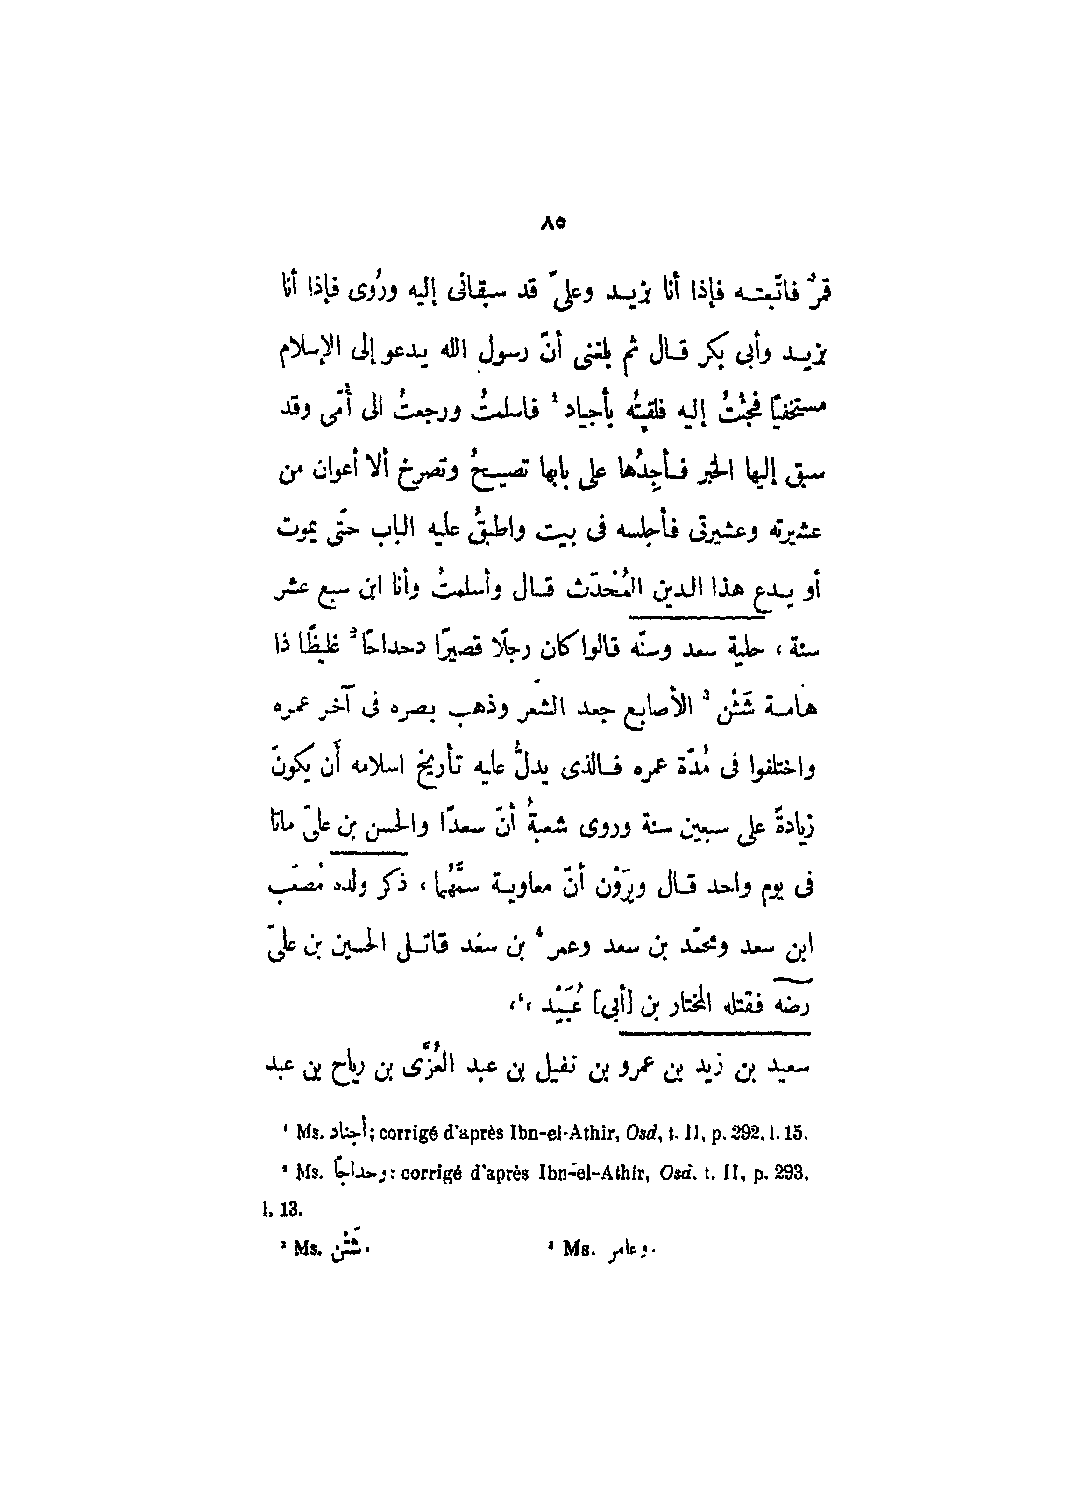 ٨٥
قمرٌ فاتّبعتـه فإذا أنا بزيـد وعليّ قد سبقانى إليه ورُوى فإذا أنا
بزيـد وأبى بكر قـال ثم بلغنى أنّ رسول الله يدعو إلى الإسلام
مستخفيًا فجئتُ إليه فلقيتُه بأجياد ¹ فاسلمتُ ورجعتُ الى أُمّى وقد
سبق إليها الخبر فـأجِدُها على بابها تصيـحُ وتصرخ ألا أعوان من
عشيرته وعشيرتى فأجلسه فى بيت واطبقُ عليه الباب حتّى يموت
أو يـدع هذا الدين المُحْدَث قـال وأسلمتُ وأنا ابن سبع عشر
سنة ، حلية سعد وسنّه قالوا كان رجلًا قصيرًا دحداحًا ² غليظًا ذا
هامـة شَثْن ³ الأصابع جعد الشعر وذهب بصره فى آخر عمره
واختلفوا فى مُدّة عمره فـالذى يدلُّ عليه تأريخ اسلامه أن يكونَ
زيادةً على سبعين سنة وروى شعبةُ أنّ سعدًا والحسن بن عليّ ماتا
فى يوم واحد قـال ويرَوْن أنّ معاويـة سمَّهُما ، ذكر ولده مُصعَب
ابن سعد ومحمّد بن سعد وعمر ⁴ بن سعد قاتـل الحسين بن عليّ
رضه فقتله المختار بن [أبى] عُبَيْد ،'،
سعيد بن زيد بن عمرو بن نفيل بن عبد العُزَّى بن رياح بن عبد
¹ Ms. أجناد; corrigé d'après Ibn-el-Athir, Osd, t. II, p. 292, l. 15.
² Ms. وحداجًا: corrigé d'après Ibn-el-Athir, Osd. t. II, p. 293,
l. 13.
³ Ms. شَتُن.
⁴ Ms. وعامر.